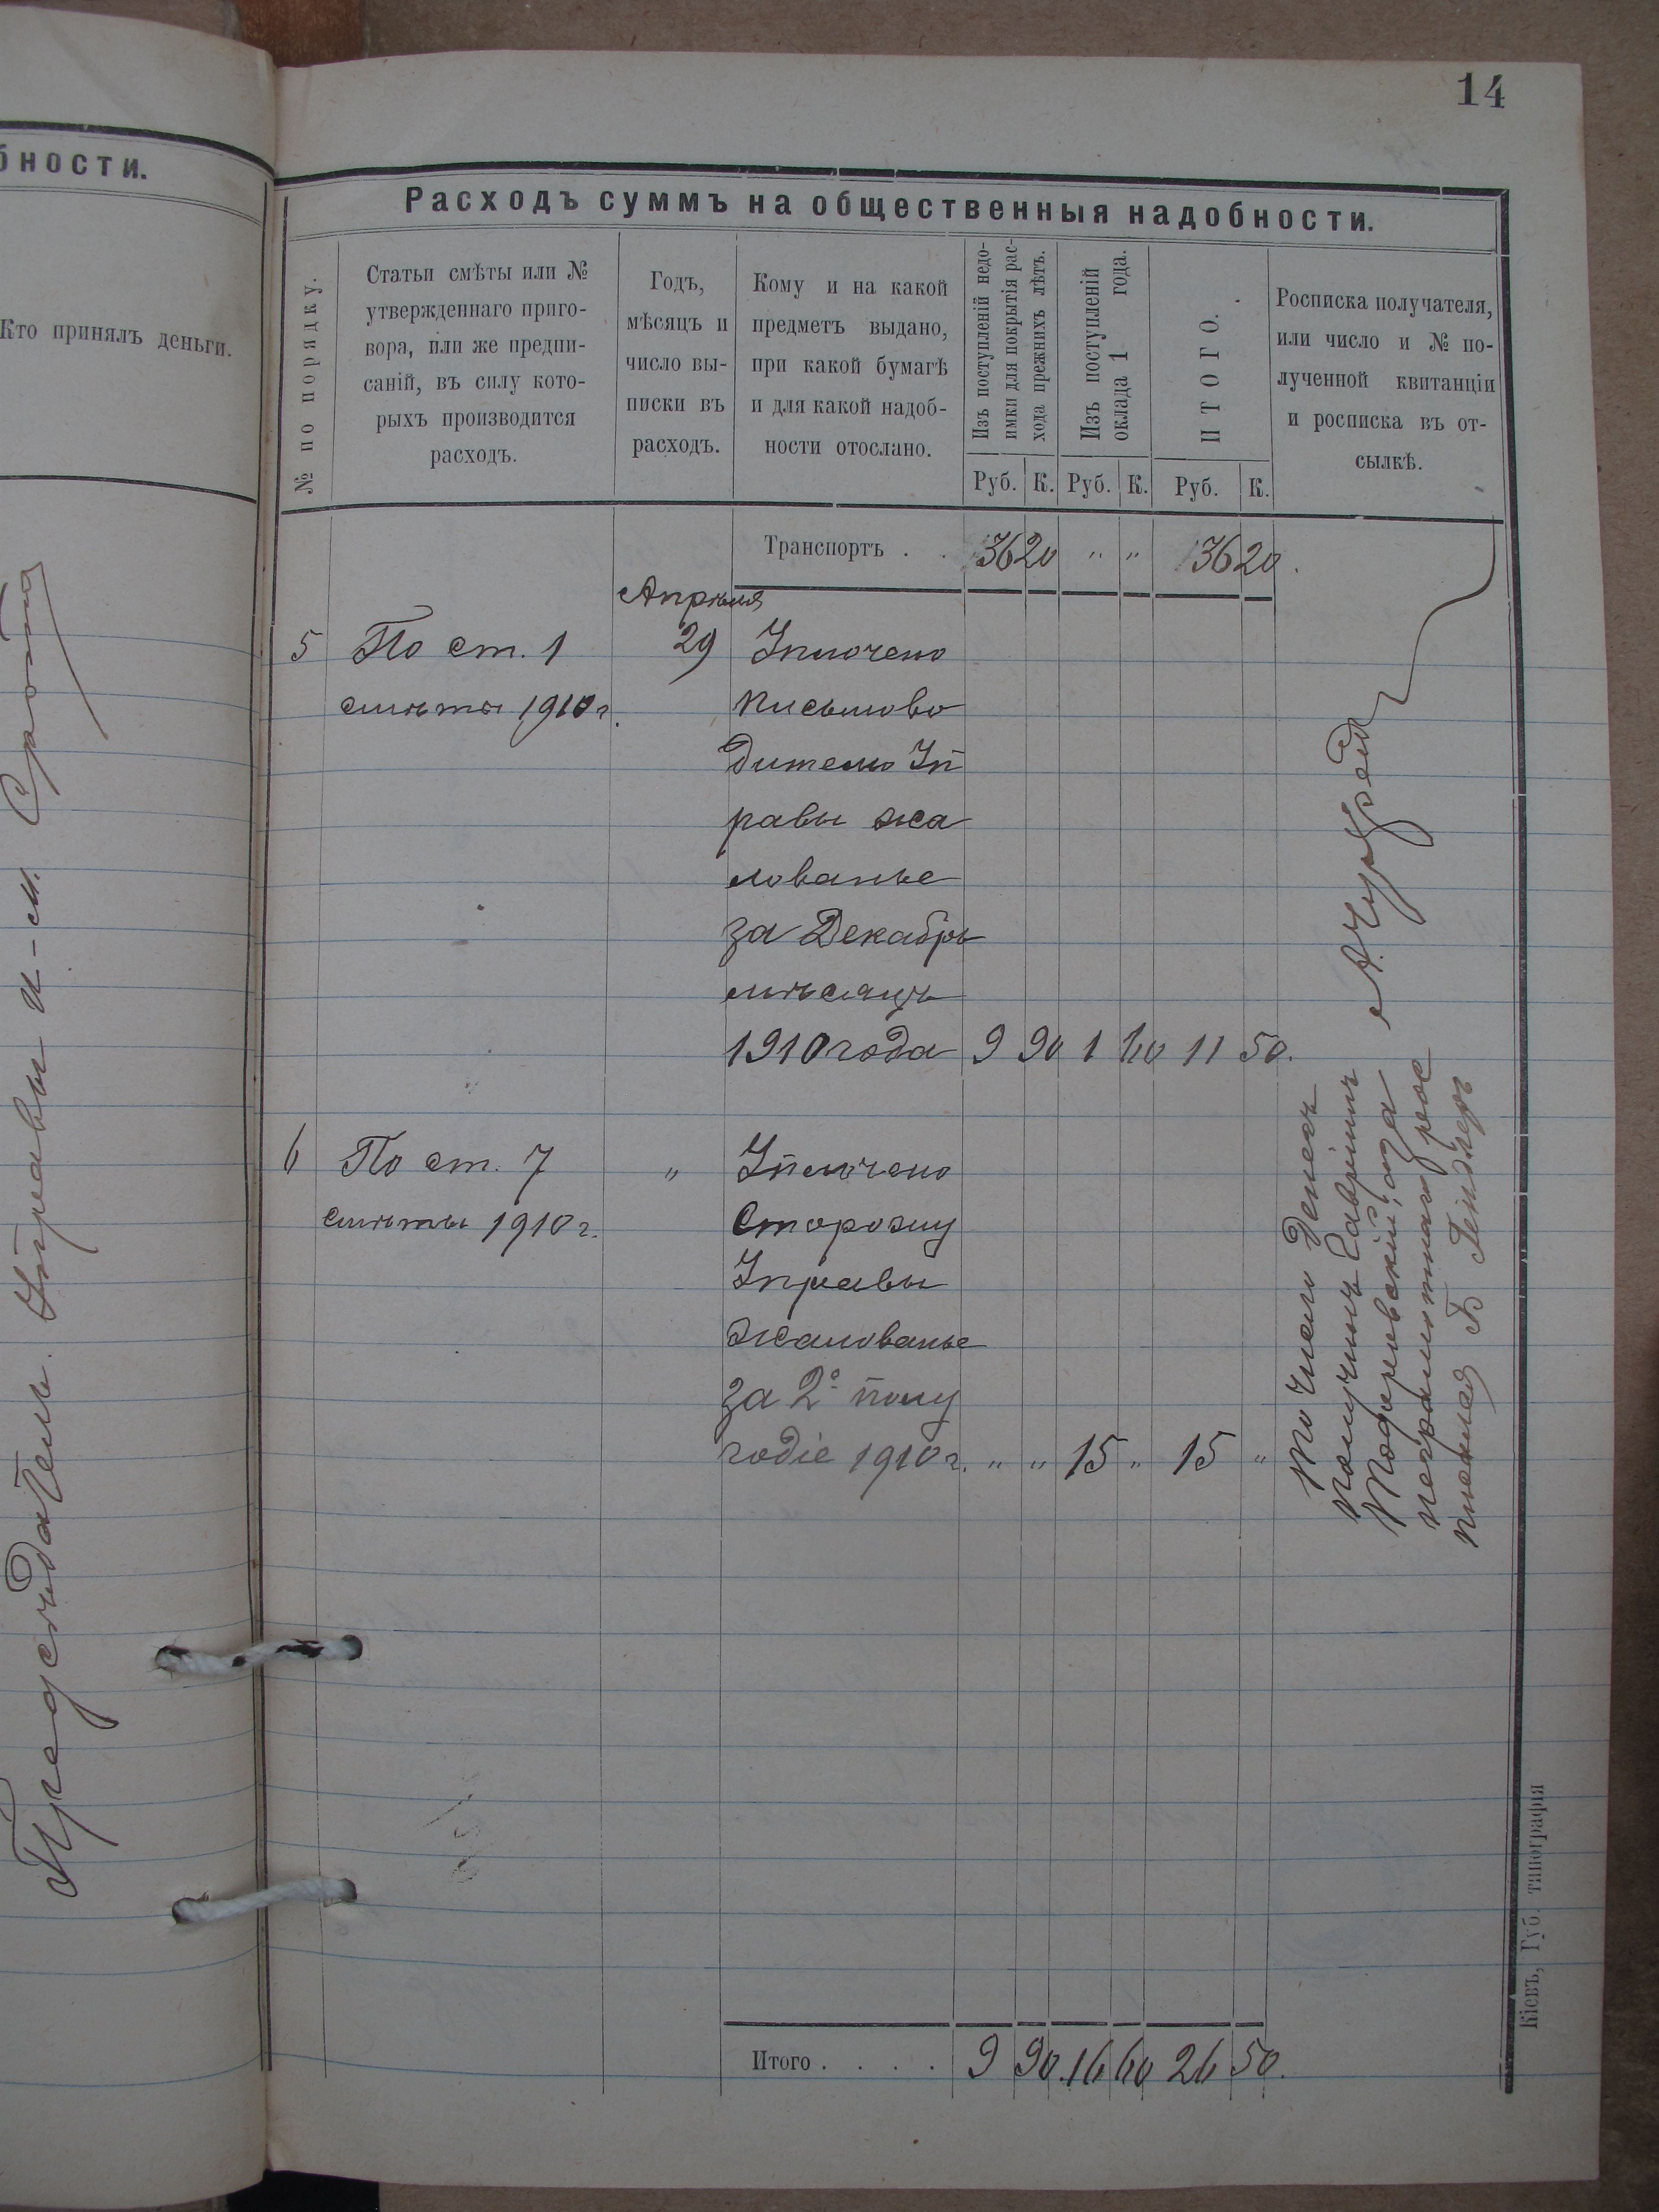 14
бности.
Кто принялъ деньги.
Предсѣдатель Управы и-м.
Расходъ суммъ на общественныя надобности.
№ по порядку.
Статьи смѣты или №
утвержденнаго приго-
вора, или же предпи-
саній, въ силу кото-
рыхъ производится
расходъ.
Годъ,
мѣсяцъ и
число вы-
писки въ
расходъ.
Кому и на какой
предметъ выдано,
при какой бумагѣ
и для какой надоб-
ности отослано.
Изъ поступленій недо-
имки для покрытія рас-
хода прежнихъ лѣтъ.
Изъ поступленій
оклада 1 года.
ИТОГО.
Росписка получателя,
или число и № по-
лученной квитанціи
и росписка въ от-
сылкѣ.
Руб. К. Руб. К. Руб. К.
Транспортъ . . 36 20 " " 36 20.
Апрѣля
5 По ст. 1 29 Уплочено
смѣты 1910 г. письмово
дителю Уп
равы жа
лованье
за Декабрь
мѣсяцъ
1910 года 9 90 1 60 11 50.
6 По ст. 7 " Уплочено
смѣты 1910 г. Сторожу
Управы
жалованье
за 2е полу
годіе 1910 г. " " 15 " 15 "
То число Денегъ
получилъ Гавріилъ
а за
неграмотнаго рос
писался Б
Итого . . . . 9 90. 16 60 26 50.
Кіевъ, Губ. типографія